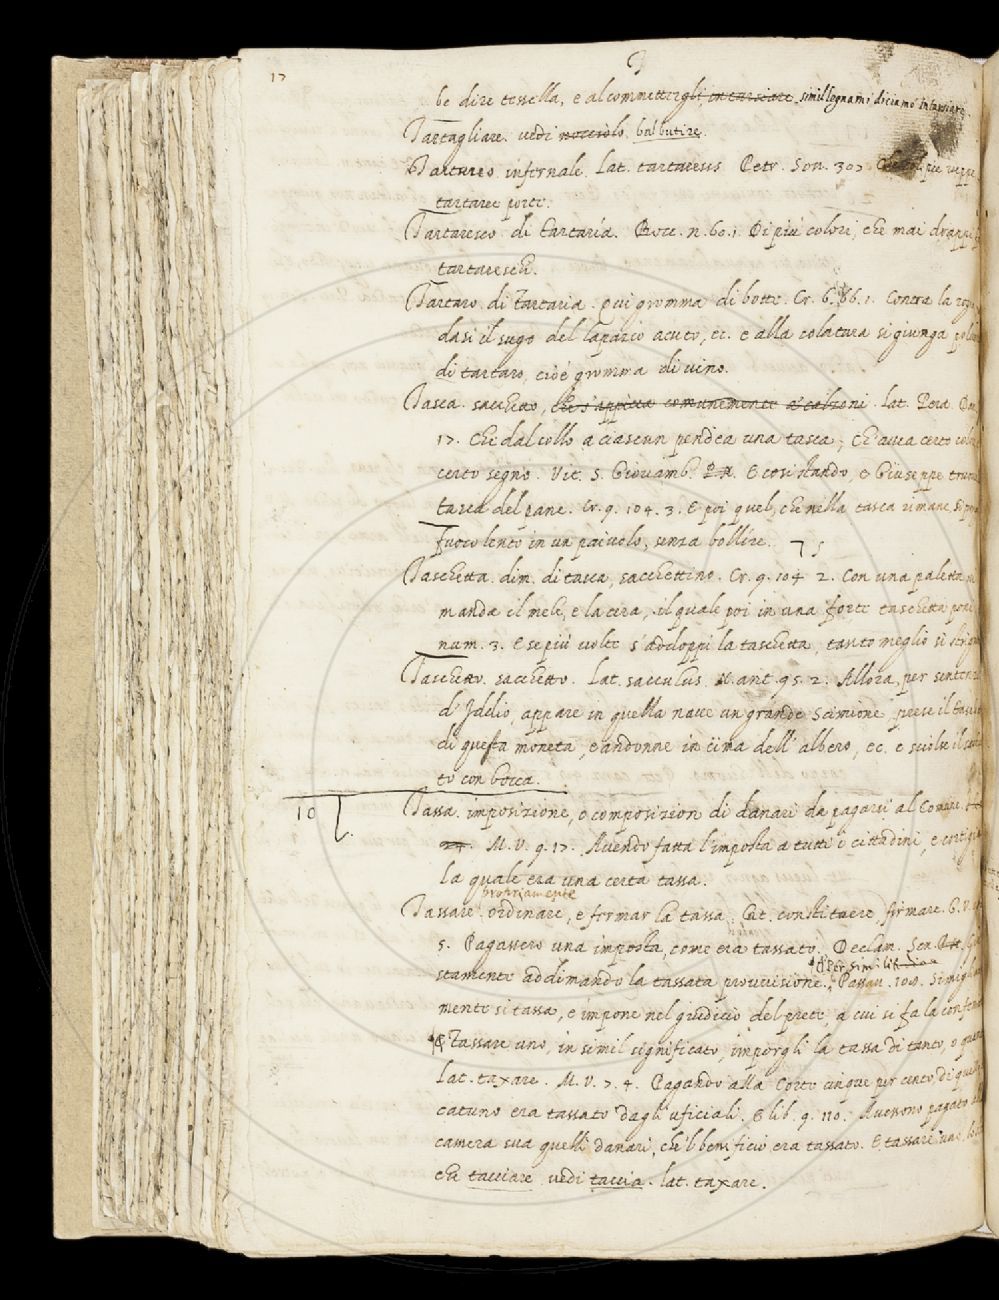 17
T
be dire tessella, e al commettergli intarsiare simil legnami diciamo intarsiare.
Tartagliare. vedi nocciolo. balbutire.
Tartareo infernale. Lat. tartareus Petr. Son. 307 più
tartaree porte.
Tartaresco di tartaria. Bocc. n. 60. 1. Di più colori, che mai drappi
tartareschi.
Tartaro di tartaria. qui gromma di botte. Cr. 6. 86. 1. Contra la
dasi il sugo del lapazio acuto, ec. e alla colatura si giunga
di tartaro, cioè gromma di vino.
Tasca. sacchetto, che s'appicca comunemente a' calzoni. lat. Pera.
17. Che dal collo a ciascun pendea una tasca, Ch'avea certo
certo segno. Vit. S. Giovamb. P. N. E così stando, e Giuseppe
tasca del pane. Cr. 9. 104. 3. E poi quel, che nella tasca rimane, si
fuoco lento in un paiuolo, senza bollire.
Taschetta. dim. di tasca, sacchettino. Cr. 9. 104 2. Con una paletta
manda il mele, e la cera, il quale poi in una forte taschetta
num. 3. E se più volte s'addoppi la taschetta, tanto meglio si
Taschetto. sacchetto. Lat. sacculus. N. ant. 95. 2. Allora, per
d'Iddio, appare in quella nave un grande scimione, prese il
di questa moneta, e andonne in cima dell'albero, ec. e sciolse il
to con bocca.
10
Tassa. imposizione, o composizion di danari da pagarsi al Comune.
M. V. 9. 17. Avendo fatta l'imposta a tutti i cittadini, e
la quale era una certa tassa.
propriamente
Tassare. ordinare, e fermar la tassa. Lat. constituere, firmare. G. V.
5. Pagassero una imposta, come era tassato. Declam. Sen.
Per similitudine
stamente addimandò la tassata provvisione. Passav. 109.
mente si tassa, e impone nel giudicio del prete, a cui si fa la
E Tassare uno, in simil significato, imporgli la tassa di tanto, o
Lat. taxare. M. V. 7. 4. Pagando alla Corte cinque per cento, di
catuno era tassato dagli uficiali. E lib. 9. 110. Avessono pagato
camera sua quelli danari, che'l beneficio era tassato. E tassare
che tacciare vedi taccia. lat. taxare.